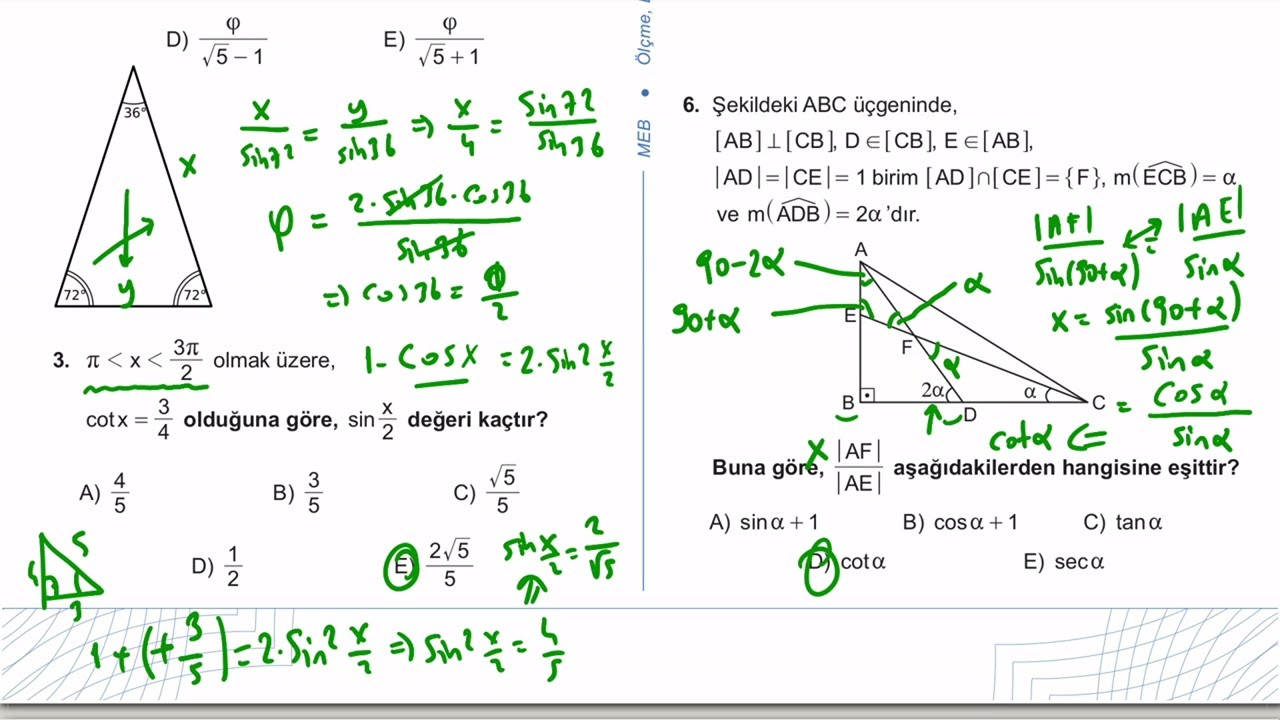 D) φ/(√5 − 1)
E) φ/(√5 + 1)
36°
x
72°
y
72°
x/sin72 = y/sin36 ⇒ x/y = sin72/sin36
φ = 2·sin36·cos36/sin36
⇒ cos36 = φ/2
3. π < x < 3π/2 olmak üzere,
1 - cosx = 2·sin² x/2
cotx = 3/4 olduğuna göre, sin x/2 değeri kaçtır?
A) 4/5
B) 3/5
C) √5/5
D) 1/2
E) 2√5/5
sin x/2 = 2/√5
5
4
3
1 + (+3/5) = 2·sin² x/2 ⇒ sin² x/2 = 4/5
MEB • Ölçme,
6. Şekildeki ABC üçgeninde,
[AB] ⊥ [CB], D ∈ [CB], E ∈ [AB],
|AD| = |CE| = 1 birim [AD] ∩ [CE] = {F}, m(ECB) = α
ve m(ADB) = 2α'dır.
|AF|/sin(90+α) = |AE|/sinα
x = sin(90+α)/sinα
= cosα/sinα
cotα ⇐
90-2α
A
α
90+α
E
F
α
B
2α
D
α
C
x
Buna göre, |AF|/|AE| aşağıdakilerden hangisine eşittir?
A) sinα + 1
B) cosα + 1
C) tanα
D) cotα
E) secα